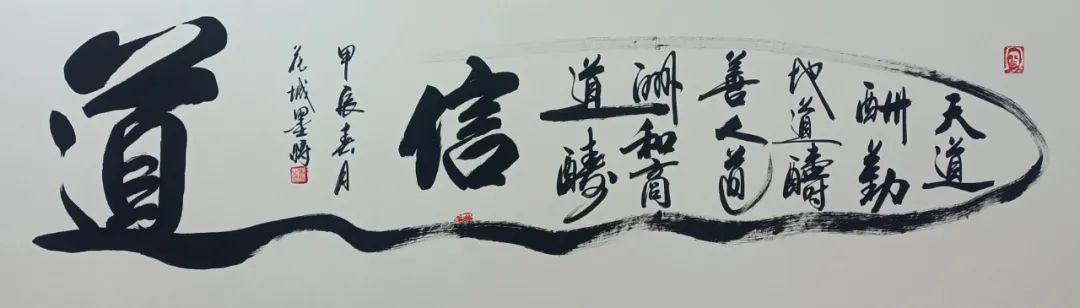 天道
酬勤
地道醻
善人道
和商
道
信
道
甲辰春月
花城墨